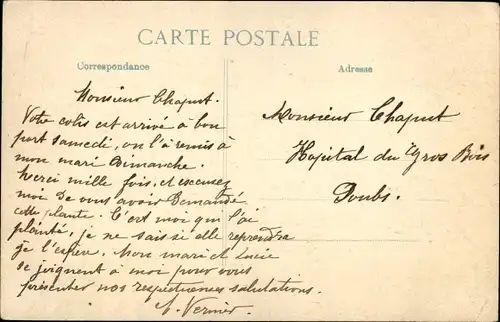 CARTE POSTALE
Correspondance
Adresse
Monsieur Chaput.
Votre colis est arrivé à bon
port samedi, on l'a remis à
mon mari Dimanche.
Merci mille fois, et excusez
moi de vous avoir Demandé
cette plante. C'est moi qui l'ai
planté, je ne sais si elle reprendra
je l'espère. Mon mari et Lucie
se joignent à moi pour vous
présenter nos respectueuses salutations.
A. Vernier.
Monsieur Chaput
Hopital du Gros Bois
Doubs.